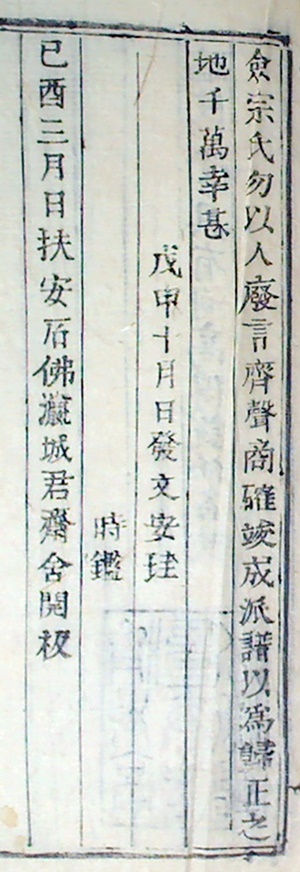 僉宗氏勿以人廢言齊聲商確竣成派譜以爲歸正之
地千萬幸甚
戊申十月日發文安珪
時鑑
己酉三月日扶安石佛瀛城君齋舍開板